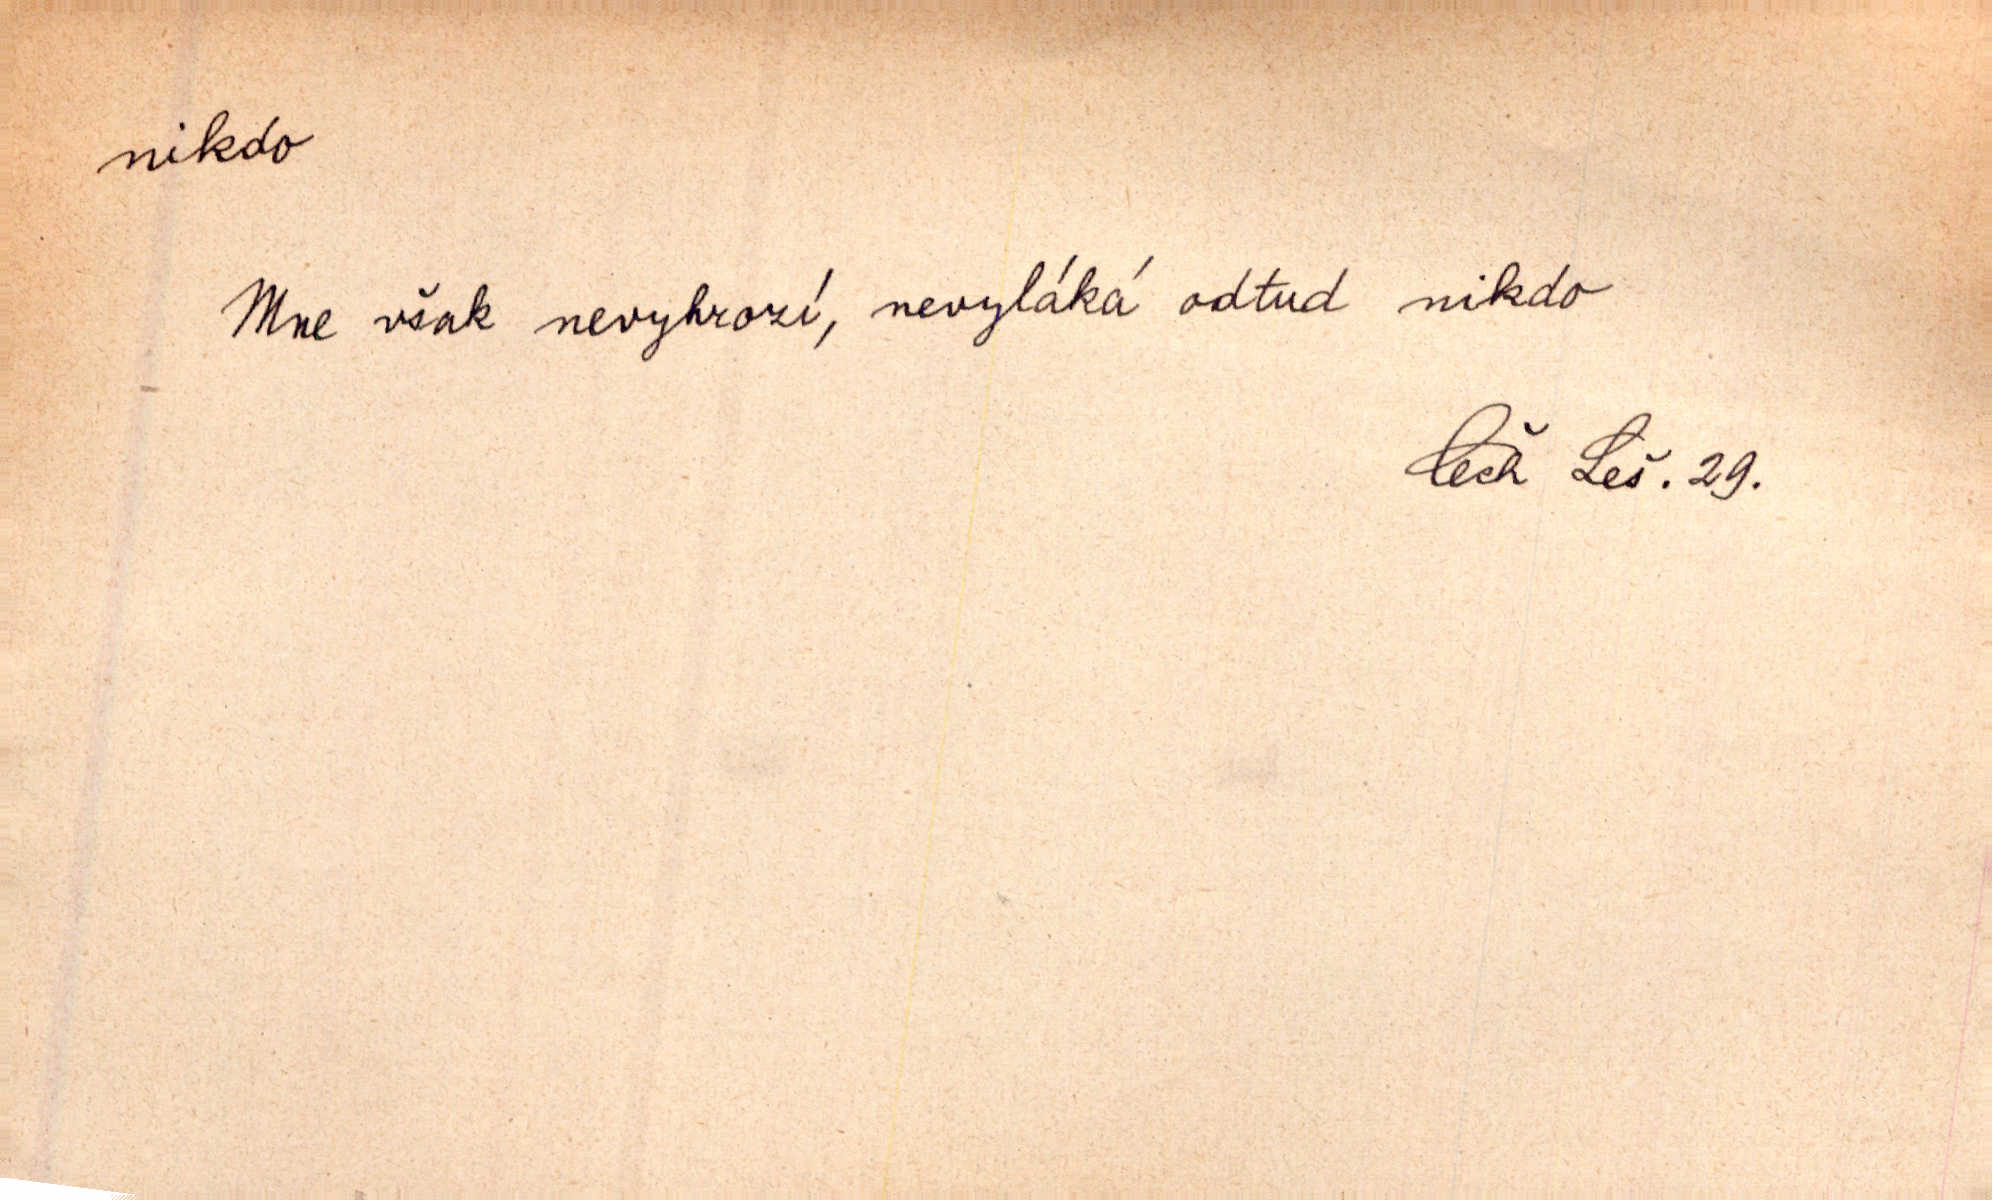 nikdo
Mne však nevyhrozí, nevyláká odtud nikdo
Čech Leš. 29.